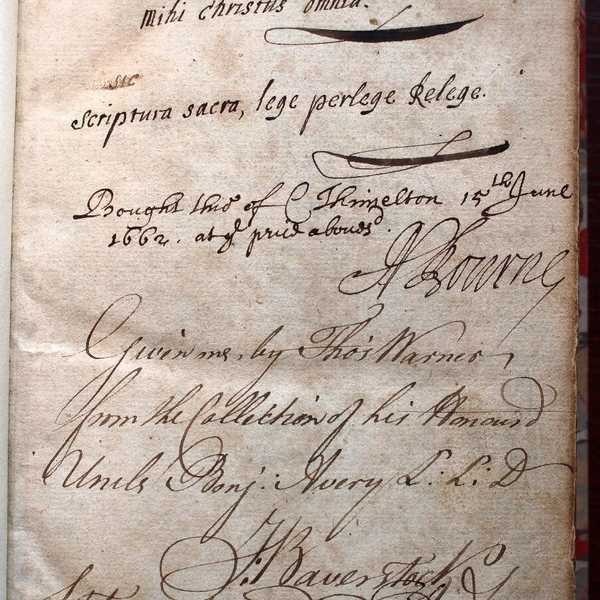 mihi christus omnia.
sic
scriptura sacra, lege perlege Relege.
Bought this of C Thimelton 15th June
1662. at ye price abovesd.
A Bourne
Given me, by Thos Warner,
from the Collection of his Honourd
Uncle Benj: Avery L: L: D
J: Baverstock